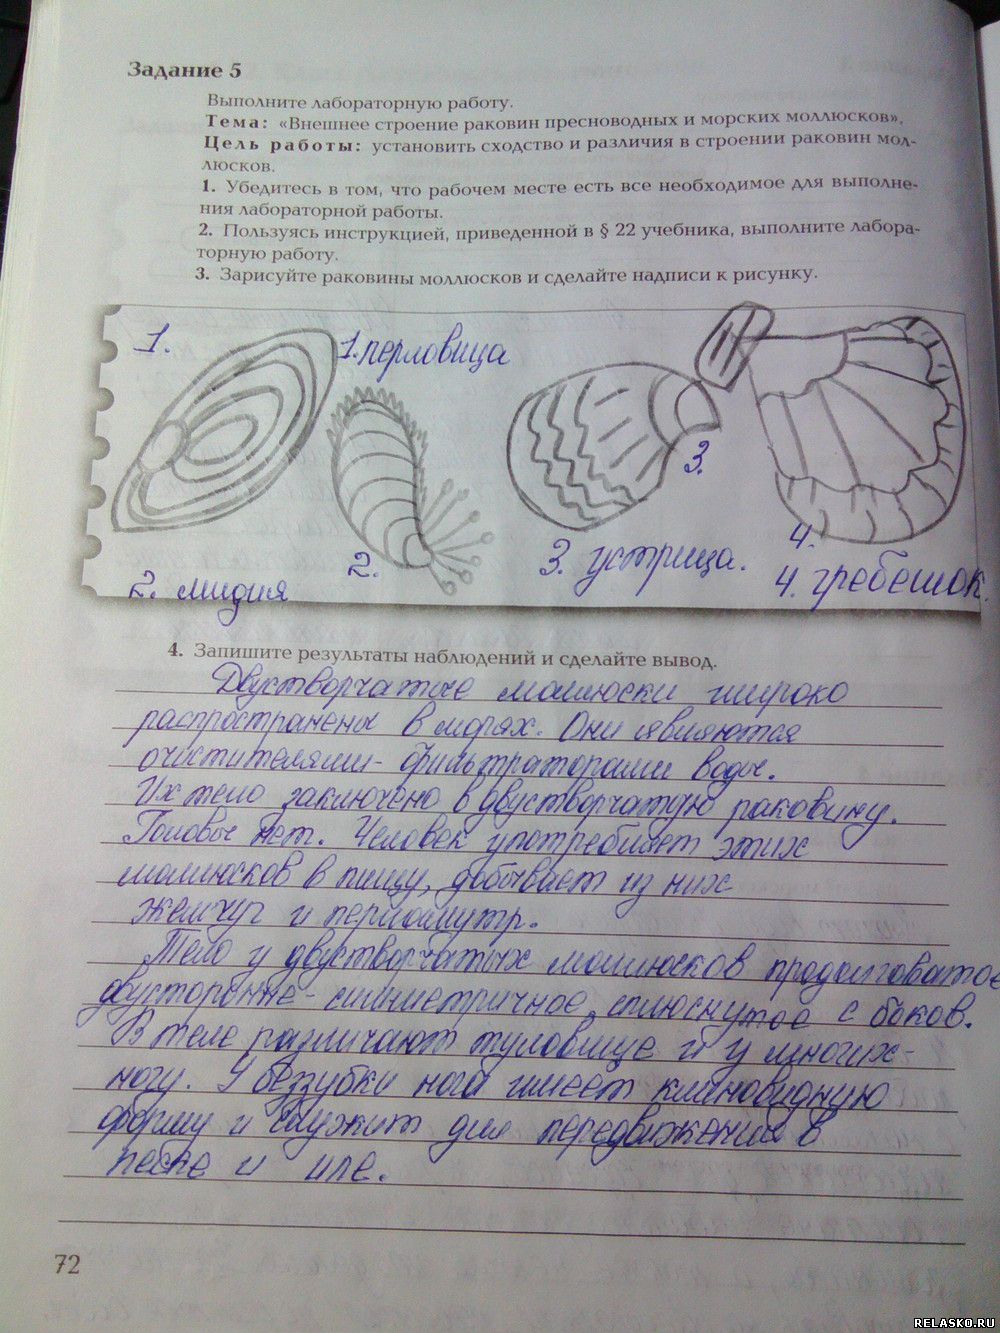 Задание 5
Выполните лабораторную работу.
Тема: «Внешнее строение раковин пресноводных и морских моллюсков».
Цель работы: установить сходство и различия в строении раковин мол-
люсков.
1. Убедитесь в том, что рабочем месте есть все необходимое для выполне-
ния лабораторной работы.
2. Пользуясь инструкцией, приведенной в § 22 учебника, выполните лабора-
торную работу.
3. Зарисуйте раковины моллюсков и сделайте надписи к рисунку.
1.
1. перловица
3.
2.
4.
2. мидия
3. устрица.
4. гребешок.
4. Запишите результаты наблюдений и сделайте вывод.
Двустворчатые моллюски широко
распространены в морях. Они являются
очистителями- фильтраторами воды.
Их тело заключено в двустворчатую раковину.
Головы нет. Человек употребляет этих
моллюсков в пищу, добывает из них
жемчуг и перламутр.
Тело у двустворчатых моллюсков продолговатое
двусторонне- симметричное, сплюснутое с боков.
В теле различают туловище и у многих-
ногу. У беззубки нога имеет клиновидную
форму и служит для передвижения в
песке и иле.
72
RELASKO.RU